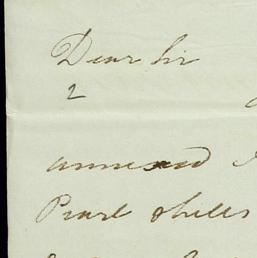 Dear Sir
2
annexed
Pearl Shells